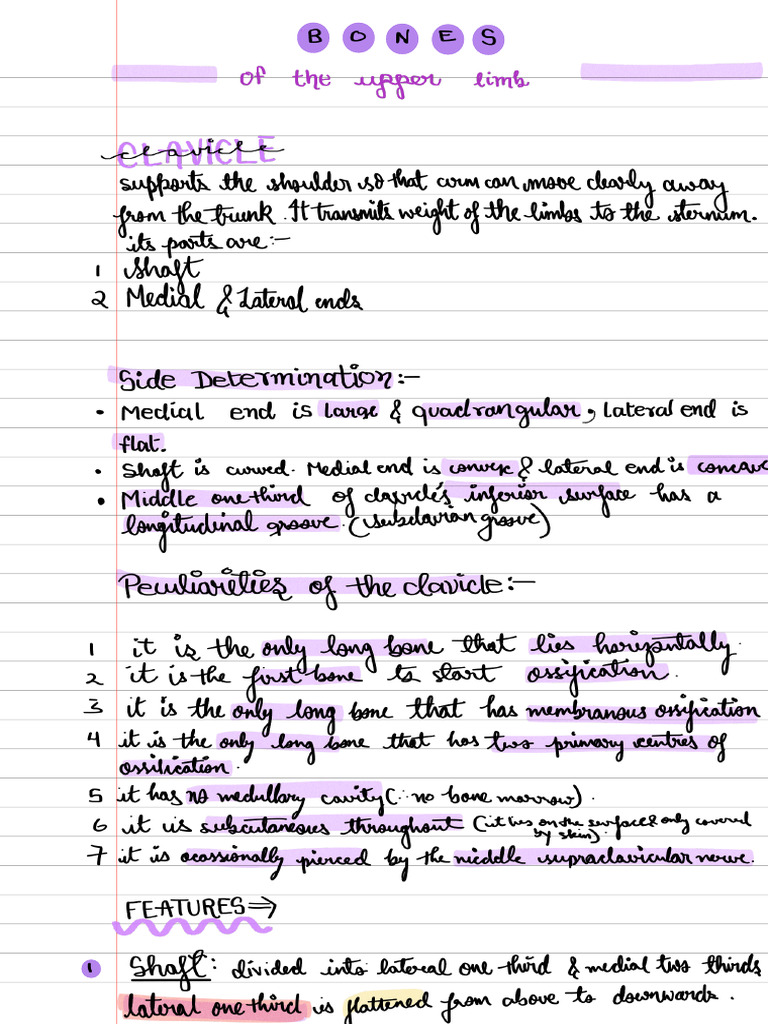 BONES
of the upper limb
CLAVICLE
clavicle
supports the shoulder so that arm can move clearly away
from the trunk. It transmits weight of the limbs to the sternum.
its parts are:-
1 Shaft
2 Medial & Lateral ends
Side Determination:-
• Medial end is large & quadrangular, Lateral end is
flat.
• Shaft is curved. Medial end is convex & lateral end is concave
• Middle one third of clavicle's inferior surface has a
longitudinal groove. (subclavian groove)
Peculiarities of the clavicle:-
1 it is the only long bone that lies horizontally.
2 it is the first bone to start ossification.
3 it is the only long bone that has membranous ossification
4 it is the only long bone that has two primary centres of
ossification.
5 it has no medullary cavity (∴ no bone marrow).
6 it is subcutaneous throughout (it lies on the surface & only covered
by skin).
7 it is ocassionally pierced by the middle supraclavicular nerve.
FEATURES⇒
1 Shaft: divided into lateral one third & medial two thirds
lateral one third is flattened from above to downwards.